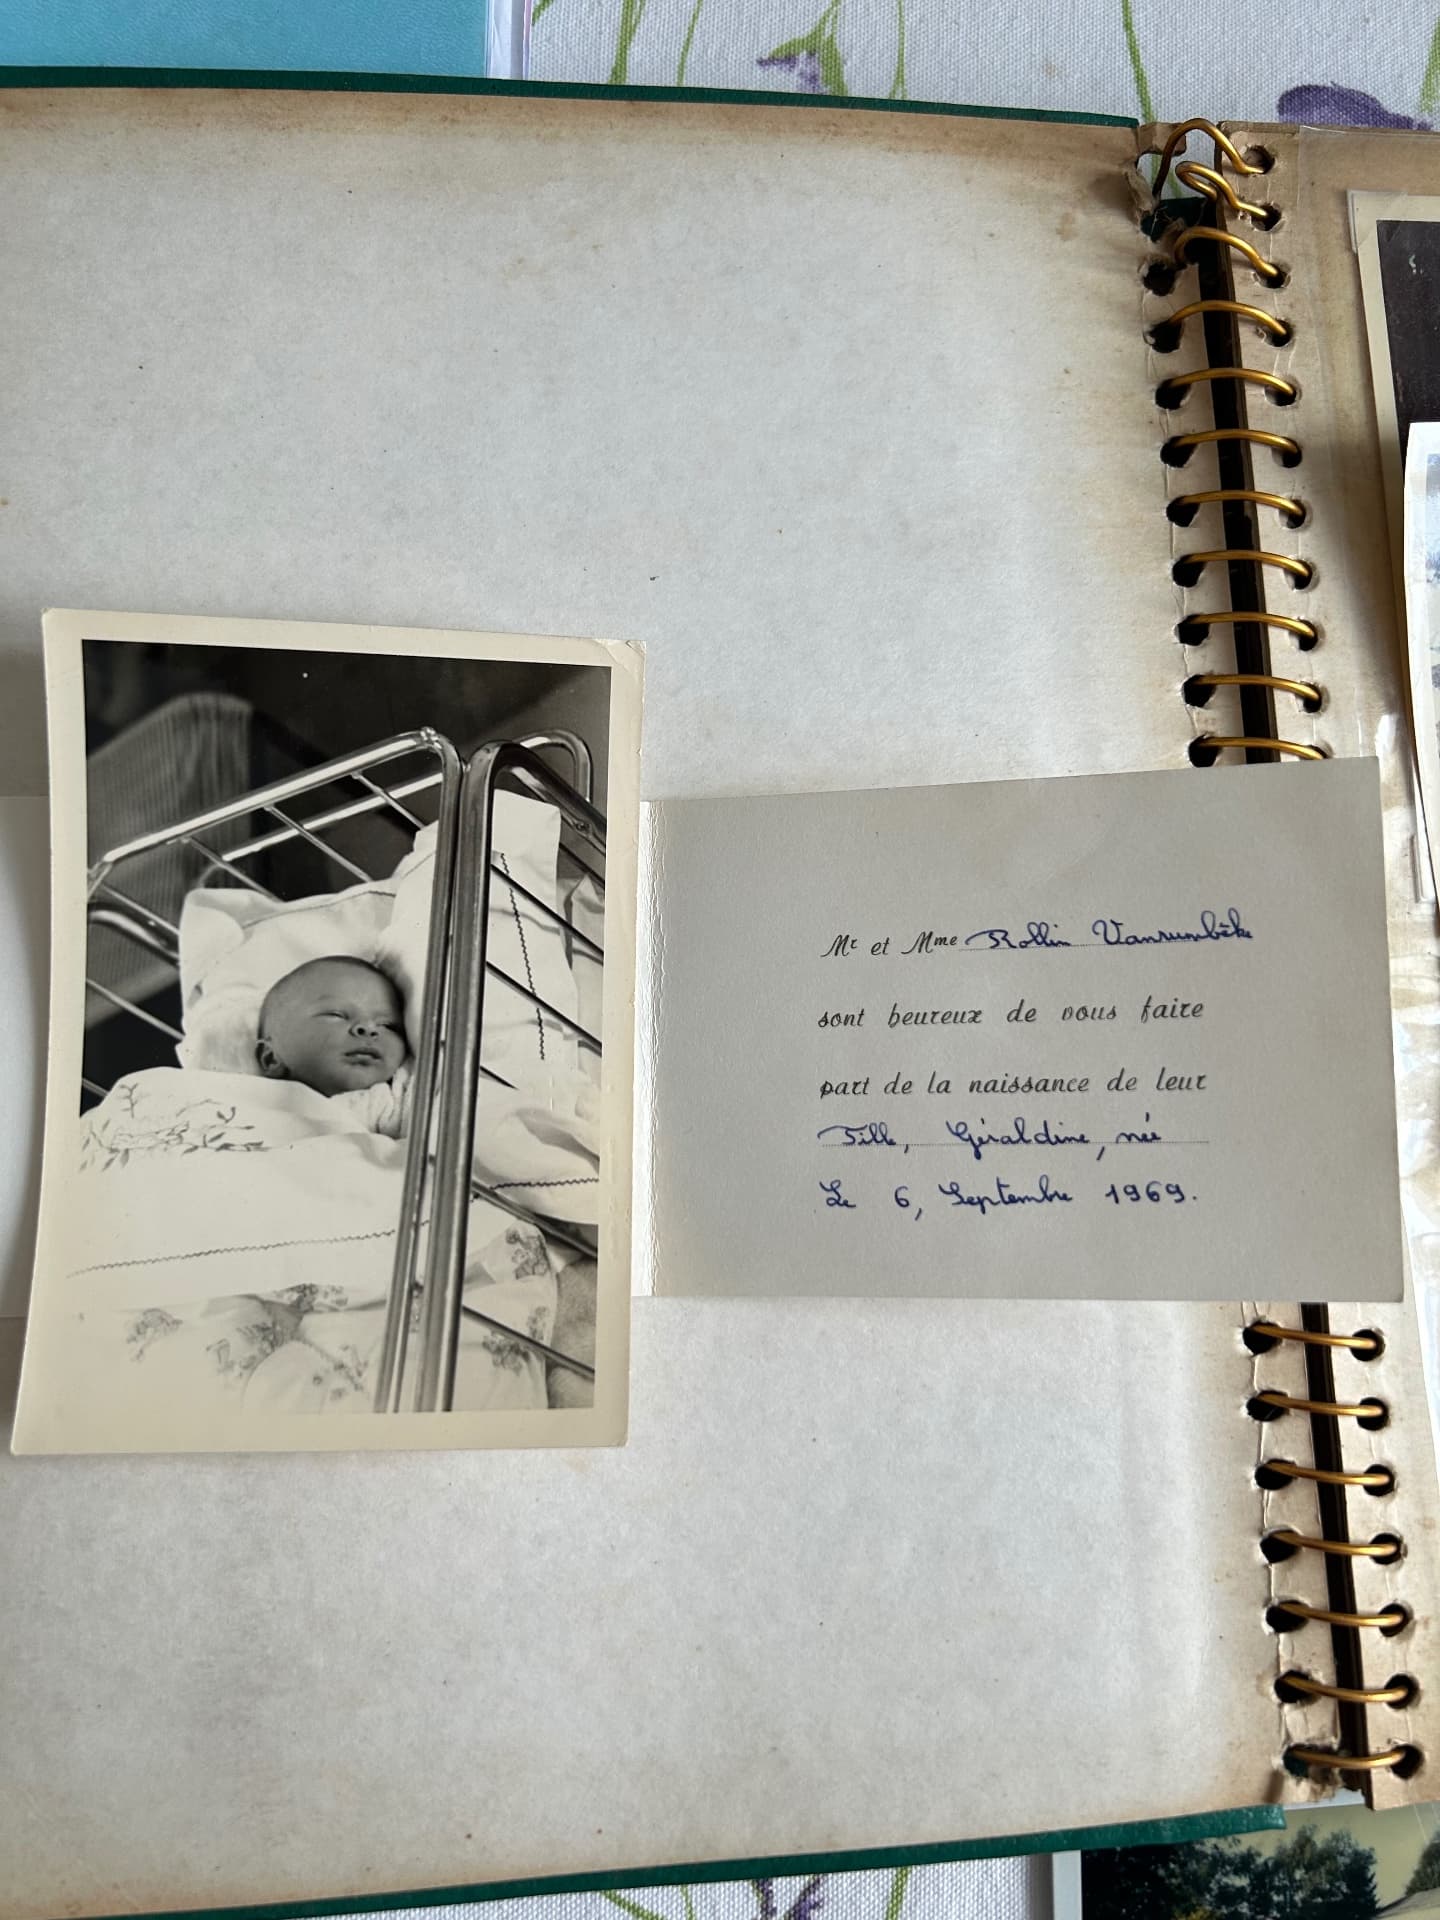 Mr et Mme Rollin Vanrumbêke
sont heureux de vous faire
part de la naissance de leur
Fille, Géraldine, née
Le 6, Septembre 1969.